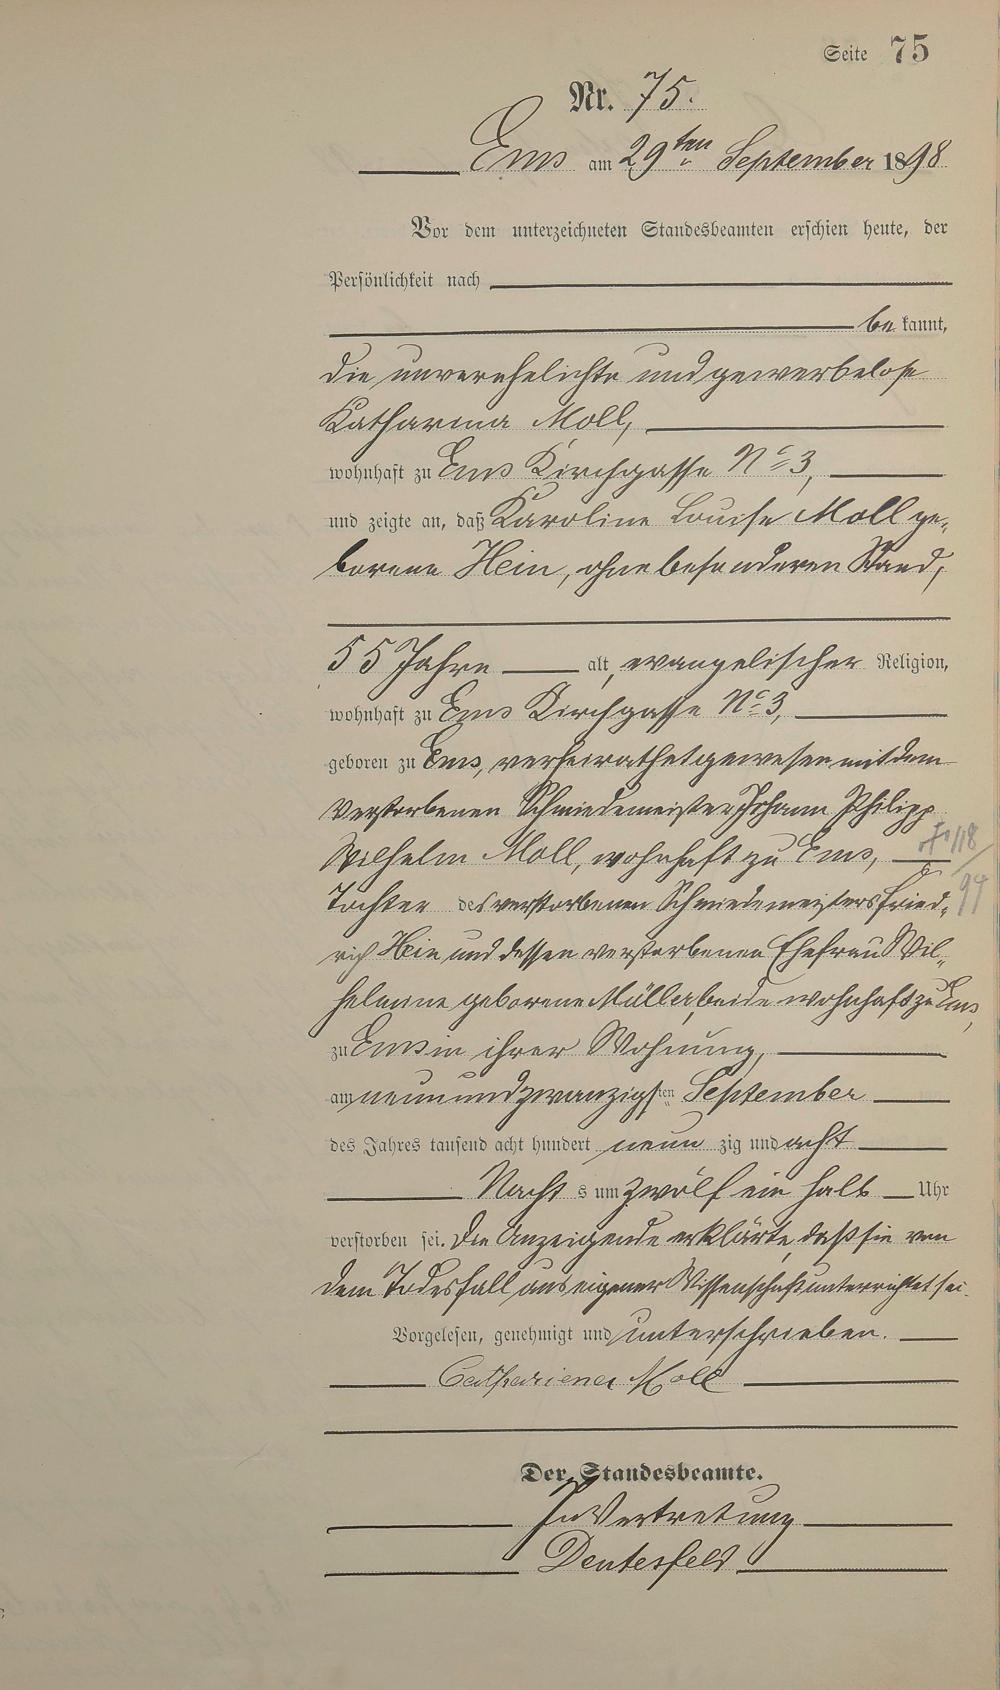 Seite 75
Nr. 75.
Ems am 29ten September 1898
Vor dem unterzeichneten Standesbeamten erschien heute, der
Persönlichkeit nach
be kannt,
die unverehelichte und gewerbelose
Katharina Moll,
wohnhaft zu Ems Kirchgasse No 3,
und zeigte an, daß Karoline Louise Moll ge„
borene Hein, ohne besonderen Stand,
55 Jahre alt, evangelischer Religion,
wohnhaft zu Ems Kirchgasse No 3,
geboren zu Ems, verheirathet gewesen mit dem
verstorbenen Schmiedemeister Johann Philipp
Wilhelm Moll, wohnhaft zu Ems,
Tochter des verstorbenen Schmiedemeisters Fried„
rich Hein und dessen verstorbenen Ehefrau Wil„
helmine geborene Müller, beide wohnhaft zu Ems,
zu Ems in ihrer Wohnung,
am neunundzwanzigsten September
des Jahres tausend acht hundert neun zig und acht
Nacht s um zwölf ein halb Uhr
verstorben sei. Die Anzeigende erklärte, daß sie von
dem Todesfall aus eigener Wissenschaft unterrichtet sei.
Vorgelesen, genehmigt und unterschrieben.
Catharina Moll
Der Standesbeamte.
In Vertretung